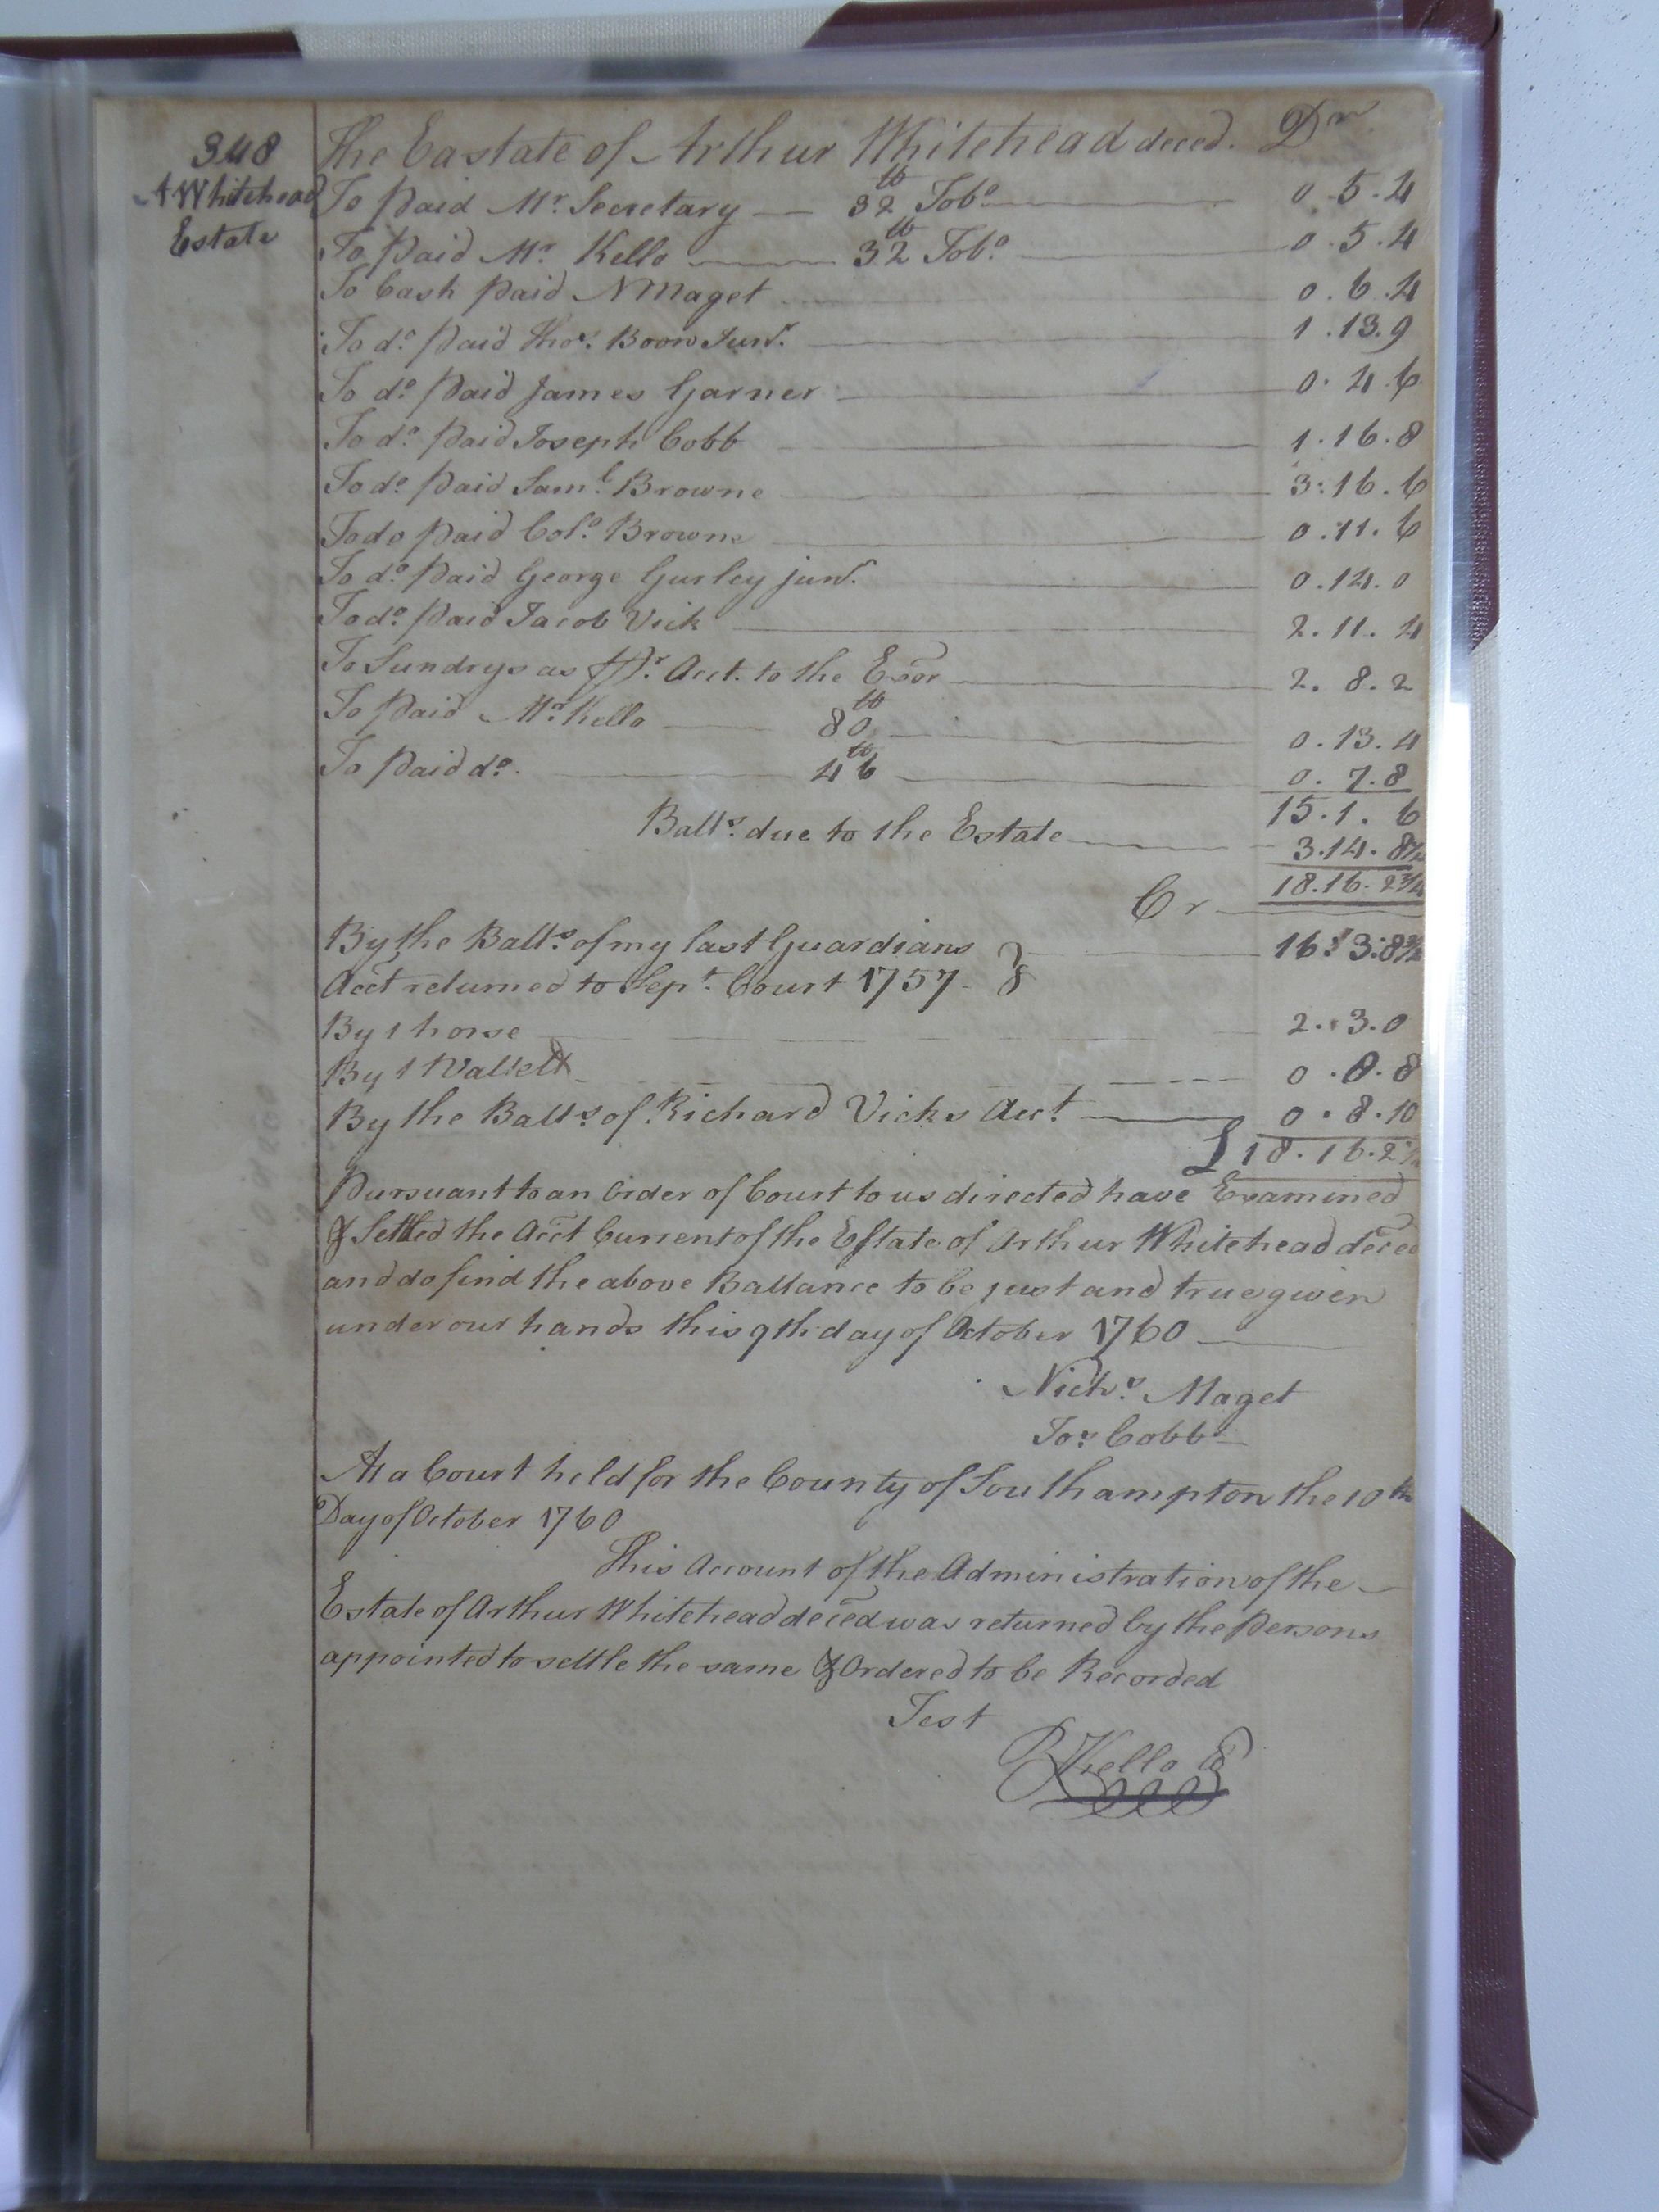 348
A Whitehead
Estate
The Eastate of Arthur Whitehead deced. Dr
To paid Mr. Secretary — 32 lb Tobo. — 0.5.4
To paid Mr. Kello — 32 lb Tobo. — 0.5.4
To Cash paid N Maget — 0.6.4
To do. paid Thos. Boon Junr. — 1.13.9
To do. paid James Garner — 0.4.6
To do. paid Joseph Cobb — 1.16.8
To do. paid Saml. Browne — 3.16.6
To do paid Colo. Browne — 0.11.6
To do. paid George Gurley junr. — 0.14.0
To do. paid Jacob Vick — 2.11.4
To Sundrys as pr. Acct. to the Exor — 2.8.2
To paid Mr. Kello — 80 lb — 0.13.4
To paid do. — 46 lb — 0.7.8
15.1.6
Balls. due to the Estate — 3.14.8¾
18.16.2¾
Cr
By the Balls. of my last Guardians — 16.3.8¾
Acct returned to Sept. Court 1757
By 1 horse — 2.3.0
By 1 Wallett — 0.0.8
By the Balls. of Richard Vicks Acct. — 0.8.10
£18.16.2¾
Pursuant to an Order of Court to us directed have Examined
& Settled the Acct Current of the Estate of Arthur Whitehead deced
and do find the above Ballance to be just and true given
under our hands this 9th day of October 1760 —
Nichs. Maget
Jos. Cobb
At a Court held for the County of Southampton the 10th
Day of October 1760
This Account of the Administration of the
Estate of Arthur Whitehead deced was returned by the Persons
appointed to settle the same & Ordered to be Recorded
Test
R Kello